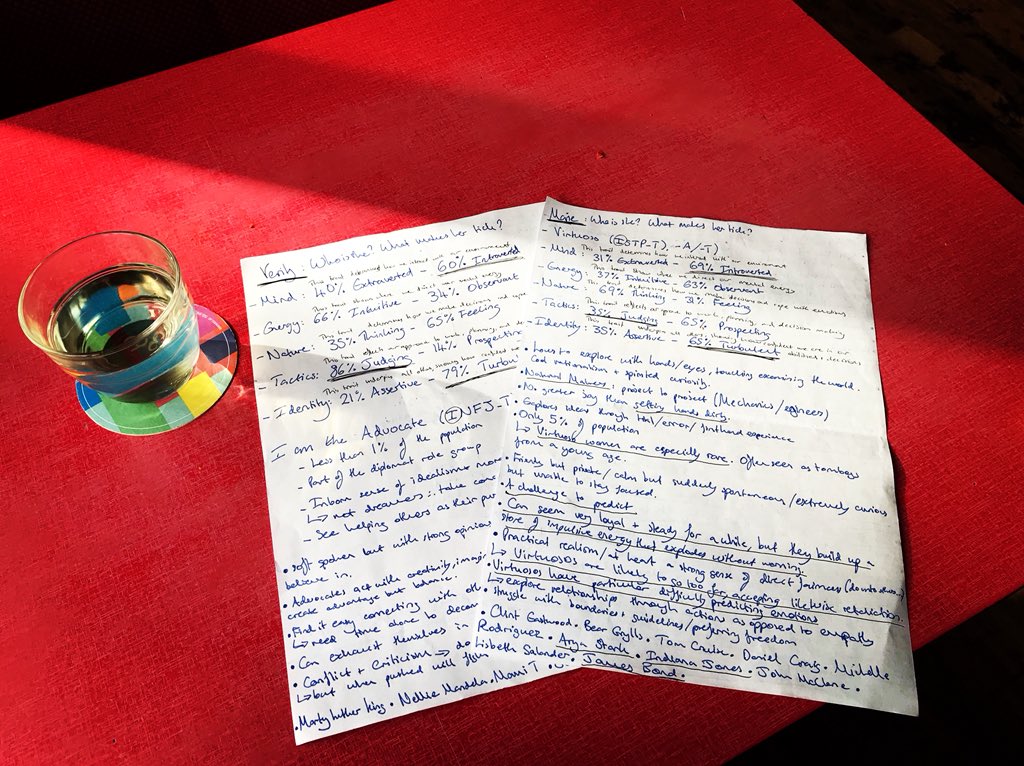 Verily : Who is she? What makes her tick?
- Mind: 40% Extraverted - 60% Introverted
This trait determines how we interact with our environment
- Energy: 66% Intuitive - 34% Observant
This trait shows where we direct our mental energy
- Nature: 35% Thinking - 65% Feeling
determines how we make decisions and cope
- Tactics: 86% Judging - 14% Prospective
This trait reflects our approach to work, planning, and
- Identity: 21% Assertive - 79% Turbu
This trait underpins all others, showing how confident we
I am the Advocate (INFJ-T
- Less than 1% of the population
- Part of the diplomat role group
- Inborn sense of idealism + mora
↳ not dreamers ∴ take conc
- See helping others as their pur
• Soft spoken but with strong opinion
believe in.
• Advocates act with creativity, imagin
create advantage but balance.
• Find it easy connecting with oth
↳ need time alone to decom
• Can exhaust themselves in
• Conflict + Criticism → do
↳ but when pushed will
• Marty luther king • Nellie Mandela • Mami T
Marie : Who is she? What makes her tick?
- Virtuoso (ISTP-T), -A/-T)
- Mind: 31% Extraverted - 69% Introverted
This trait determines how we interact with our environment
- Energy: 37% Intuitive - 63% Observant
This trait shows where we direct our mental energy
- Nature: 69% Thinking - 31% Feeling
determines how we make decisions and cope with emotions
- Tactics: 35% Judging - 65% Prospecting
This trait reflects our approach to work, planning, and decision making
- Identity: 35% Assertive - 65% Turbulent
This trait underpins all others, showing how confident we are in our abilities + decisions
• loves to explore with hands/eyes, touching examining the world.
Cool rationalism + spirited curiosity.
• Natural Makers: project to project (Mechanics/engineers)
• No greater joy than getting hands dirty.
• Explores ideas through trial/error/firsthand experience
• Only 5% of population
↳ Virtuoso women are especially rare. Often seen as tomboys
from a young age.
• Friendly but private/calm but suddenly spontaneous/extremely curious
but unable to stay focused.
• A challenge to predict
• Can seem very loyal + steady for a while, but they build up a
store of impulsive energy that explodes without warning.
• Practical realism/at heart a strong sense of direct fairness (do unto others)
↳ Virtuosos are likely to go too far, accepting likewise retaliation.
• Virtuosos have particular difficulty predicting emotions
↳ explore relationships through actions as opposed to empathy
struggle with boundaries + guidelines/preferring freedom
Clint Eastwood • Bear Grylls • Tom Cruise • Daniel Craig • Michelle
Rodriguez • Arya Stark • Indiana Jones • John McClane •
• Lisbeth Salander • James Bond.